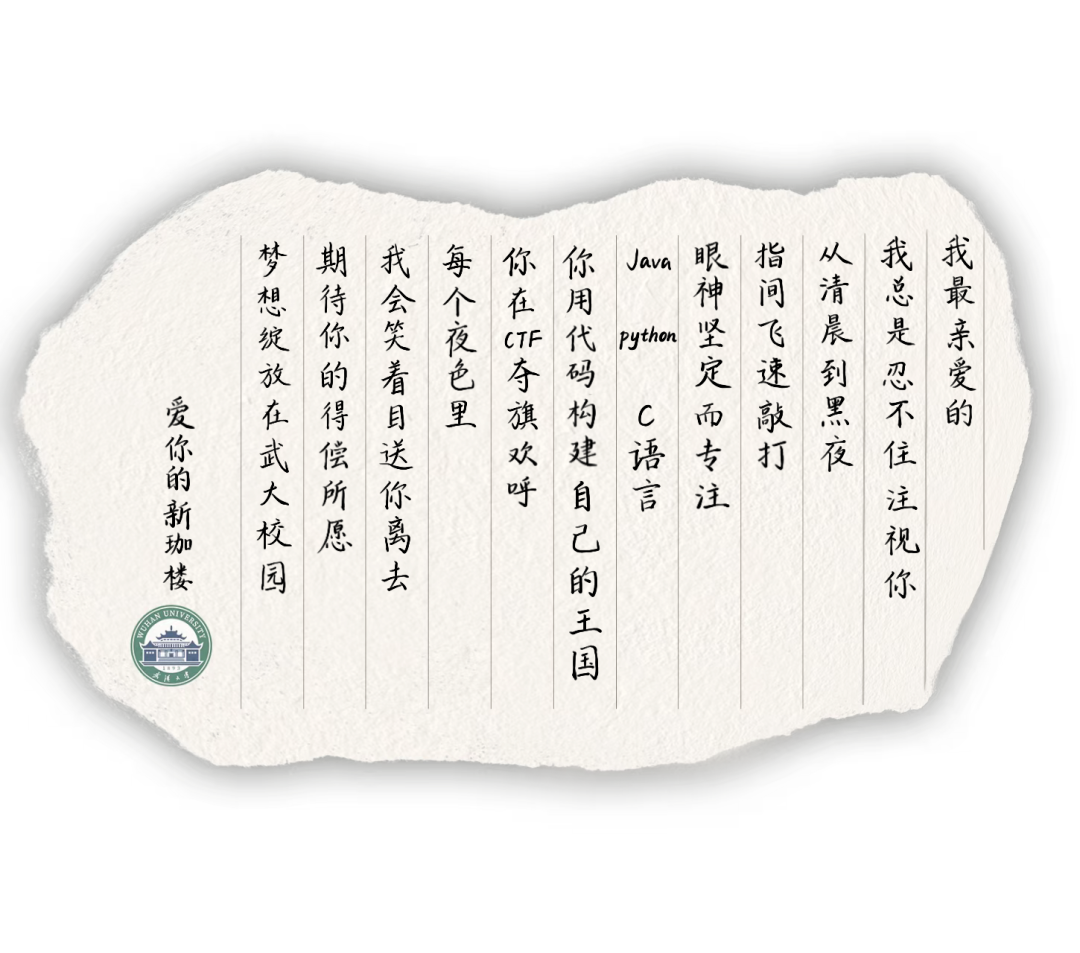 我最亲爱的
我总是忍不住注视你
从清晨到黑夜
指间飞速敲打
眼神坚定而专注
Java python C语言
你用代码构建自己的王国
你在CTF夺旗欢呼
每个夜色里
我会笑着目送你离去
期待你的得偿所愿
梦想绽放在武大校园
爱你的新珈楼
WUHAN UNIVERSITY
1893
武汉大学